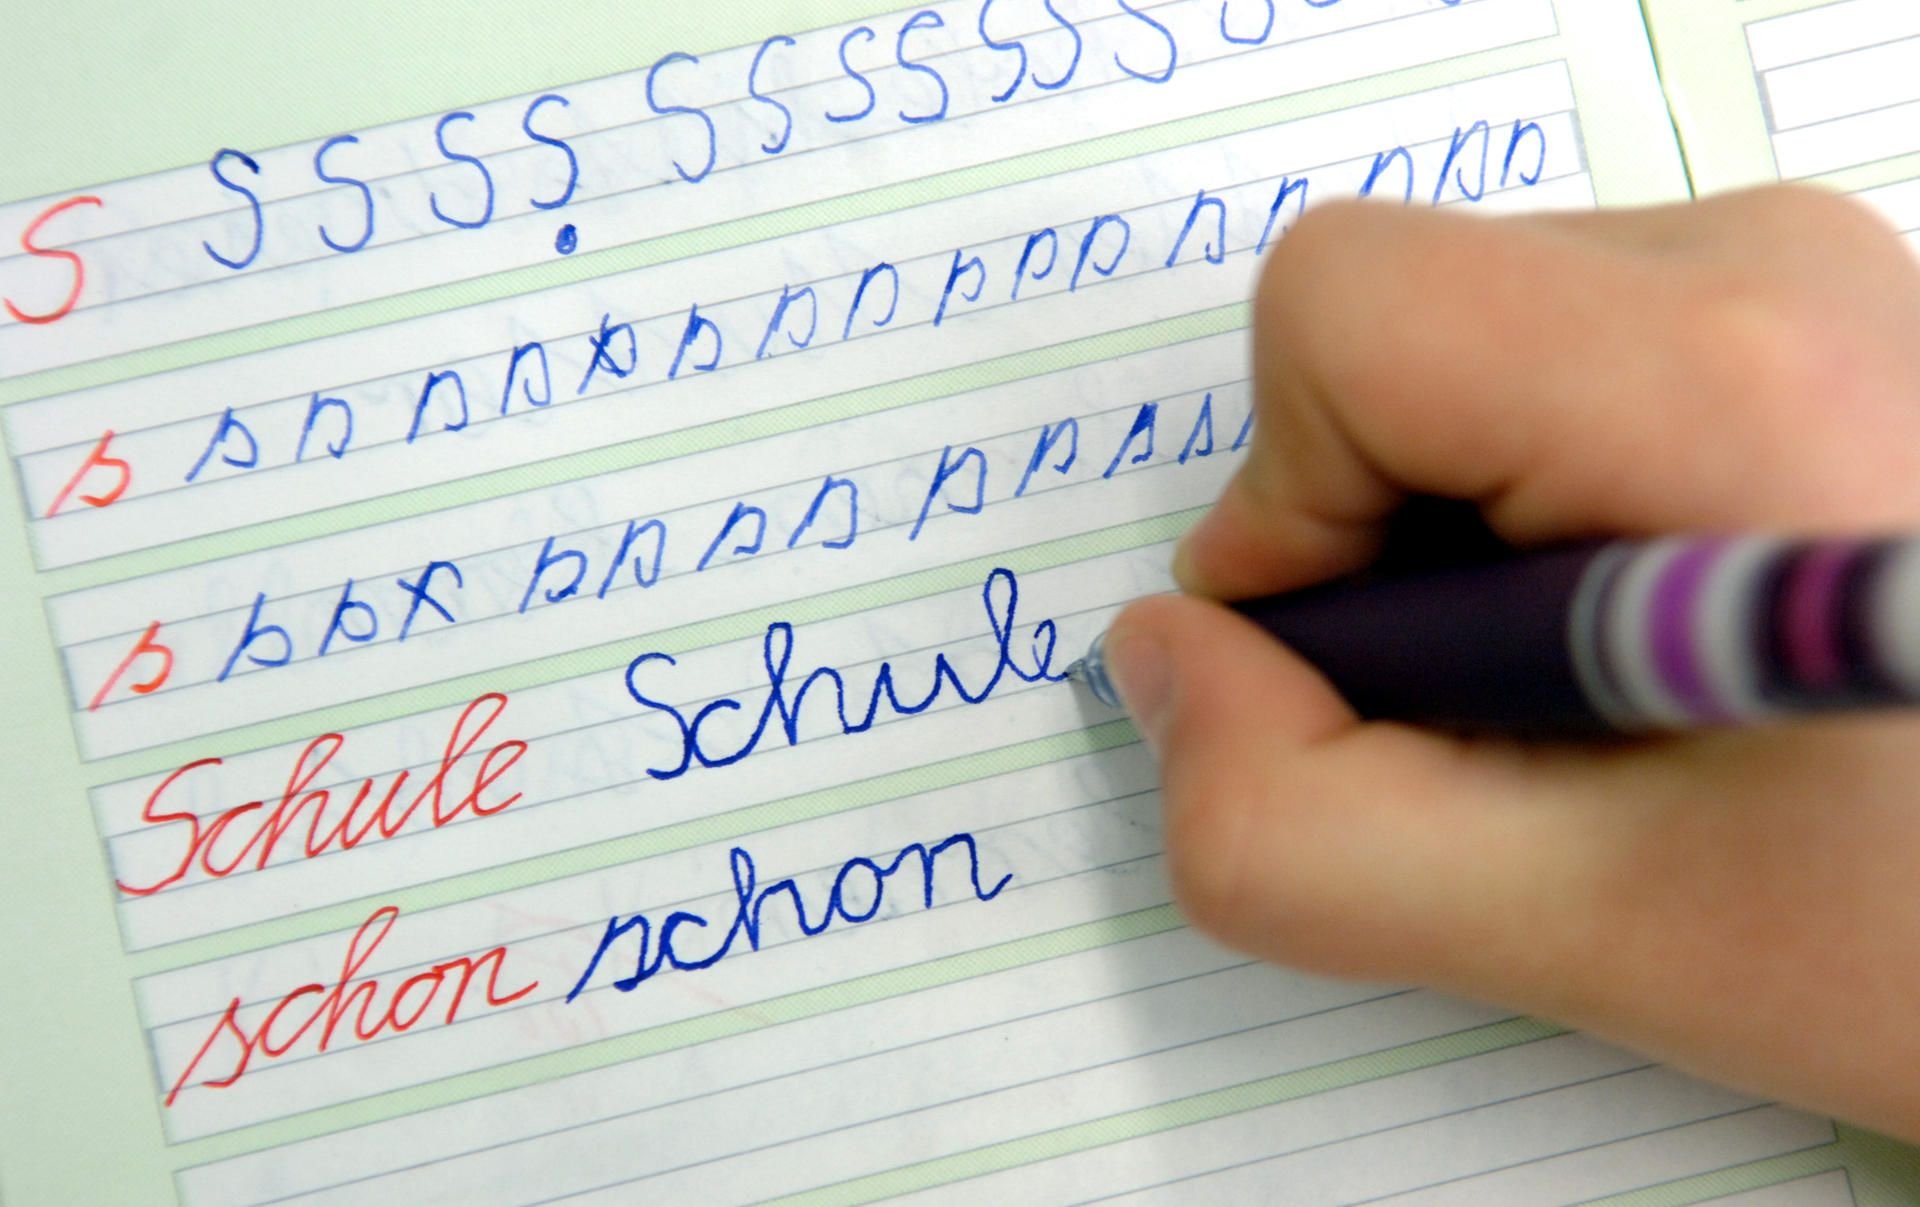 S S S S S S S S S S S S S
s s s s s s s s s s s s s s s s s
s s s s s s s s s s s s
Schule Schule
schon schon